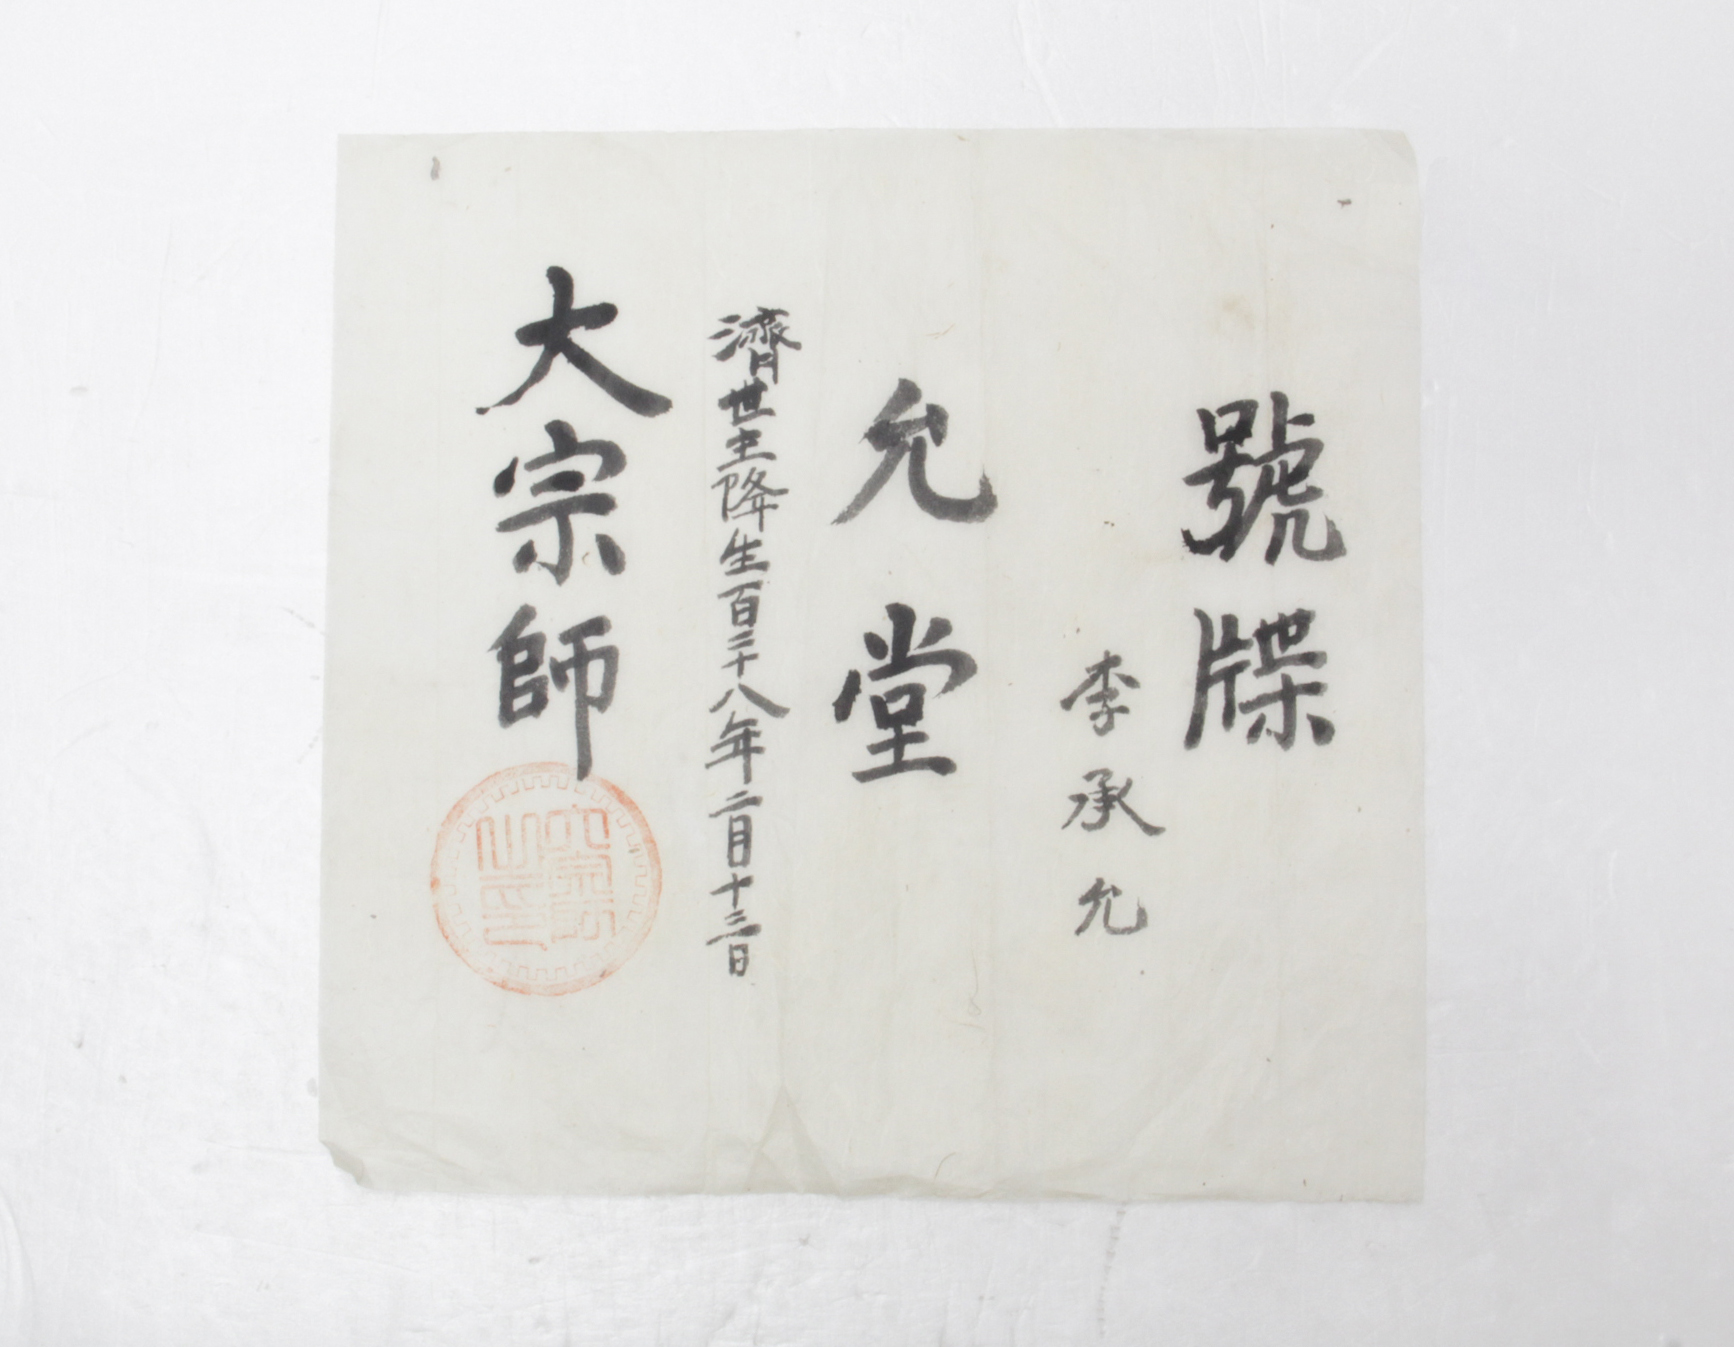 號牒
李承允
允堂
濟世主降生百三十八年二月十三日
大宗師
大宗師
之印